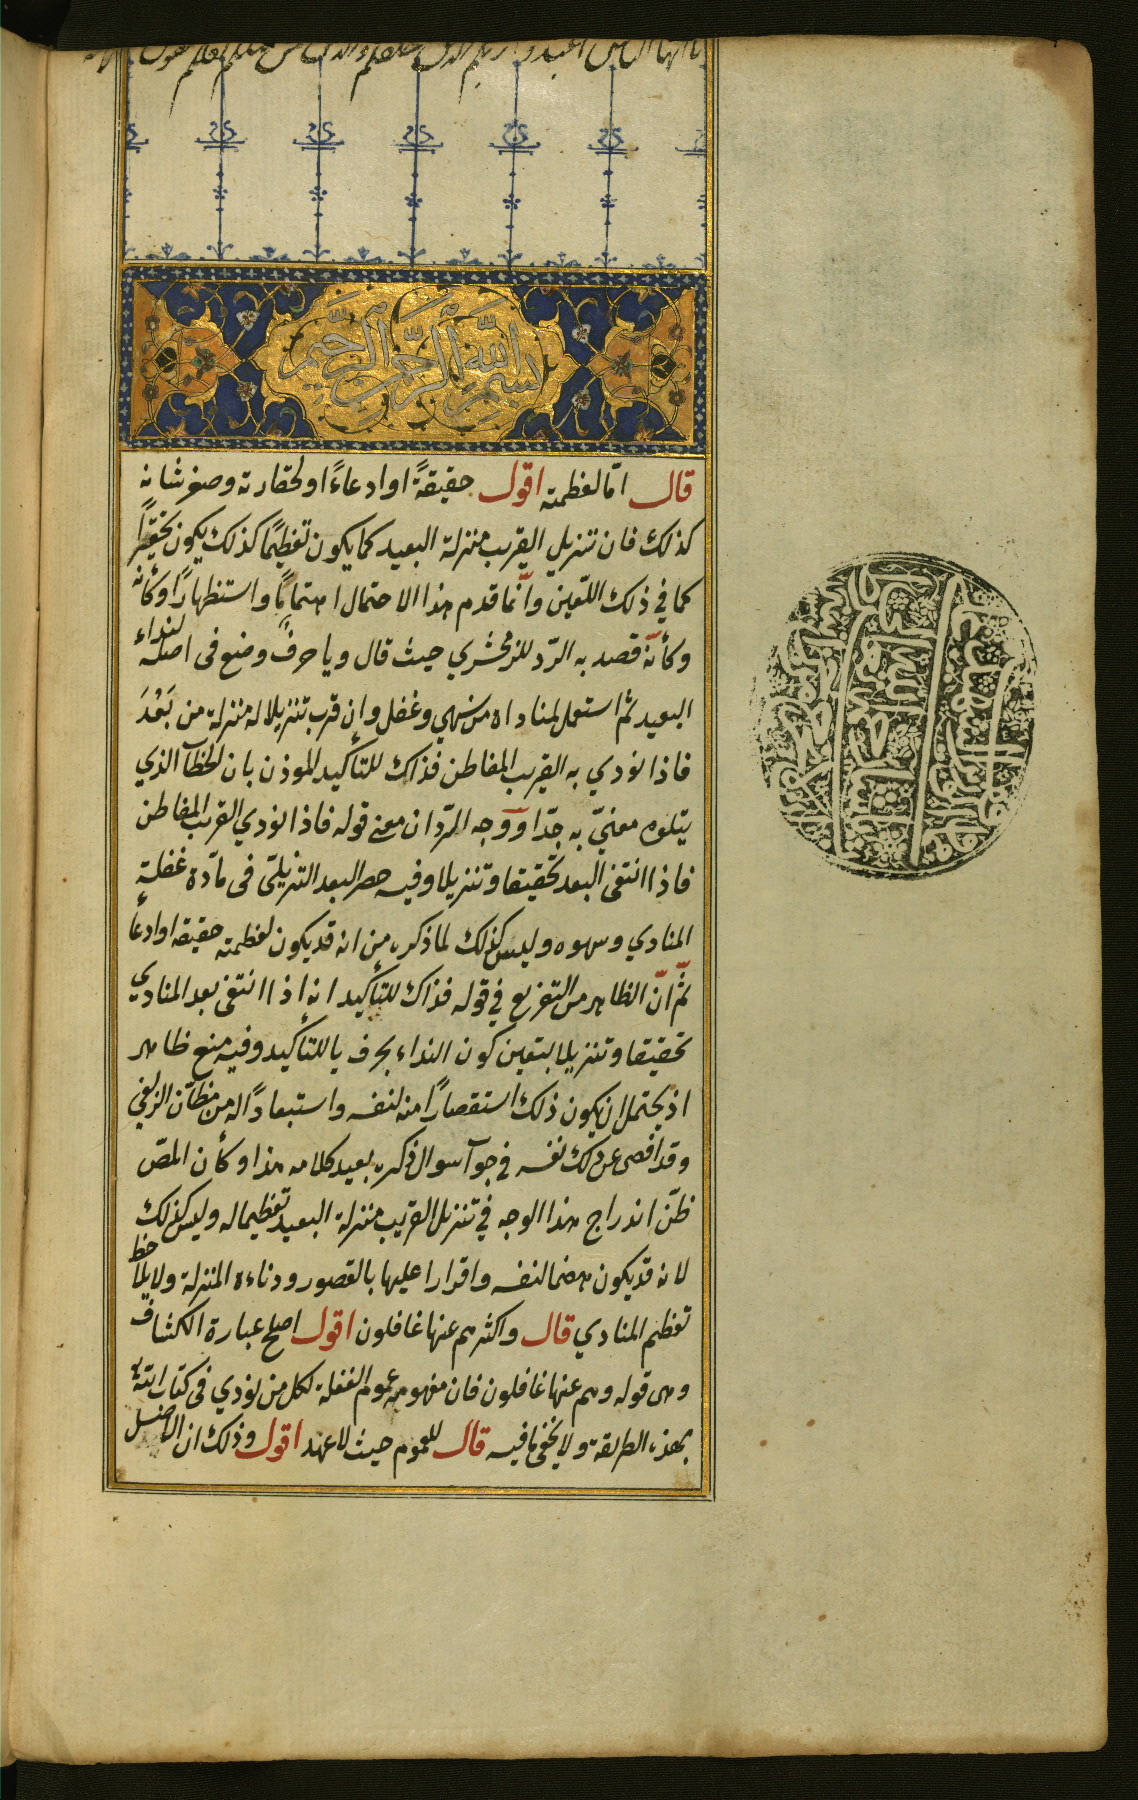 بسم الله الرحمن الرحيم
قال اما لعظمته اقول حقيقةً او ادعاءً او لحقارته وصغر شانه
كذلك فان تنزيل القريب منزلة البعيد كما يكون تعظيمًا كذلك يكون تحقيرًا
كما في ذلك اللعين وانّما قدم هذا الاحتمال اهتمامًا واستظهارًا وكأنه
وكأنّه قصد به الرّد للزمخشري حيث قال ويا حرفٌ وضع في اصله لنداء
البعيد ثم استعمل لمناداه من سهي وغفل وان قرب تنزيلا له منزلة من بَعُدَ
فاذا نودي به القريب المفاطن فذاك للتأكيد الموذن بان الخطاب الذي
يتلوه معنيّ به جدّا ووجه الردّ ان معنى قوله فاذا نودي القريب المفاطن
فاذا انتفى البعد تحقيقا وتنزيلا وفيه حصر البعد التنزيليّ في مادّة غفلةِ
المنادي وسهوه وليس كذلك لما ذكره من انه قد يكون لعظمته حقيقه او ادعا
ثمّ انّ الظاهر من التفريع في قوله فذاك للتأكيد انه اذا انتفى بعد المنادي
تحقيقا وتنزيلا يتعين كون النداء بحرف يا للتأكيد وفيه منع ظاهر
اذ يحتمل ان يكون ذلك استقصارًا منه لنفسه واستبعادًا له من مظانّ الزلفى
وقد افصح عن ذلك نفسه في جواب سوال ذكره بعيد كلامه هذا وكأن المصّ
ظنّ اندراج هذا الوجه في تنزيل القريب منزلة البعيد تعظيما له وليس كذلك
لانه قد يكون هضما لنفسه واقرارا عليها بالقصور ودناءة المنزلة ولا يلاحظ
تعظيم المنادي قال واكثرهم عنها غافلون اقول اصلح عبارة الكشاف
وهي قوله وهم عنها غافلون فان مفهومه عموم الغفلة لكل من نودي في كتاب الله
بهذه الطريقة ولا يخفى ما فيه قال للعموم حيث لا عهد اقول وذلك ان الاصل